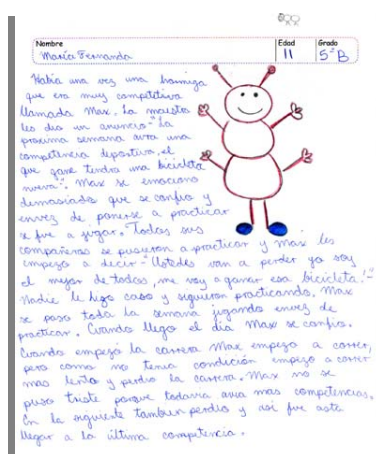 Nombre Edad Grado
María Fernanda 11 5º B
Había una vez una hormiga
que era muy competitiva
llamada Max. La maestra
les dio un anuncio "La
proxima semana avra una
competencia deportiva, el
que gane tendra una bicicleta
nueva". Max se emociono
demasiado que se confio y
envez de ponerse a practicar
se fue a jugar. Todos sus
compañeros se pusieron a practicar y Max les
empezo a decir -"Ustedes van a perder yo soy
el mejor de todos, me voy a ganar esa bicicleta!"-
Nadie le hizo caso y siguieron practicando. Max
se paso toda la semana jugando envez de
practicar. Cuando llego el dia Max se confio.
Cuando empezo la carrera Max empezo a correr,
pero como no tenia condición empezo a correr
mas lento y perdio la carrera. Max no se
puso triste porque todavia avia mas competencias.
En la siguiente tambien perdio y asi fue asta
llegar a la última competencia.